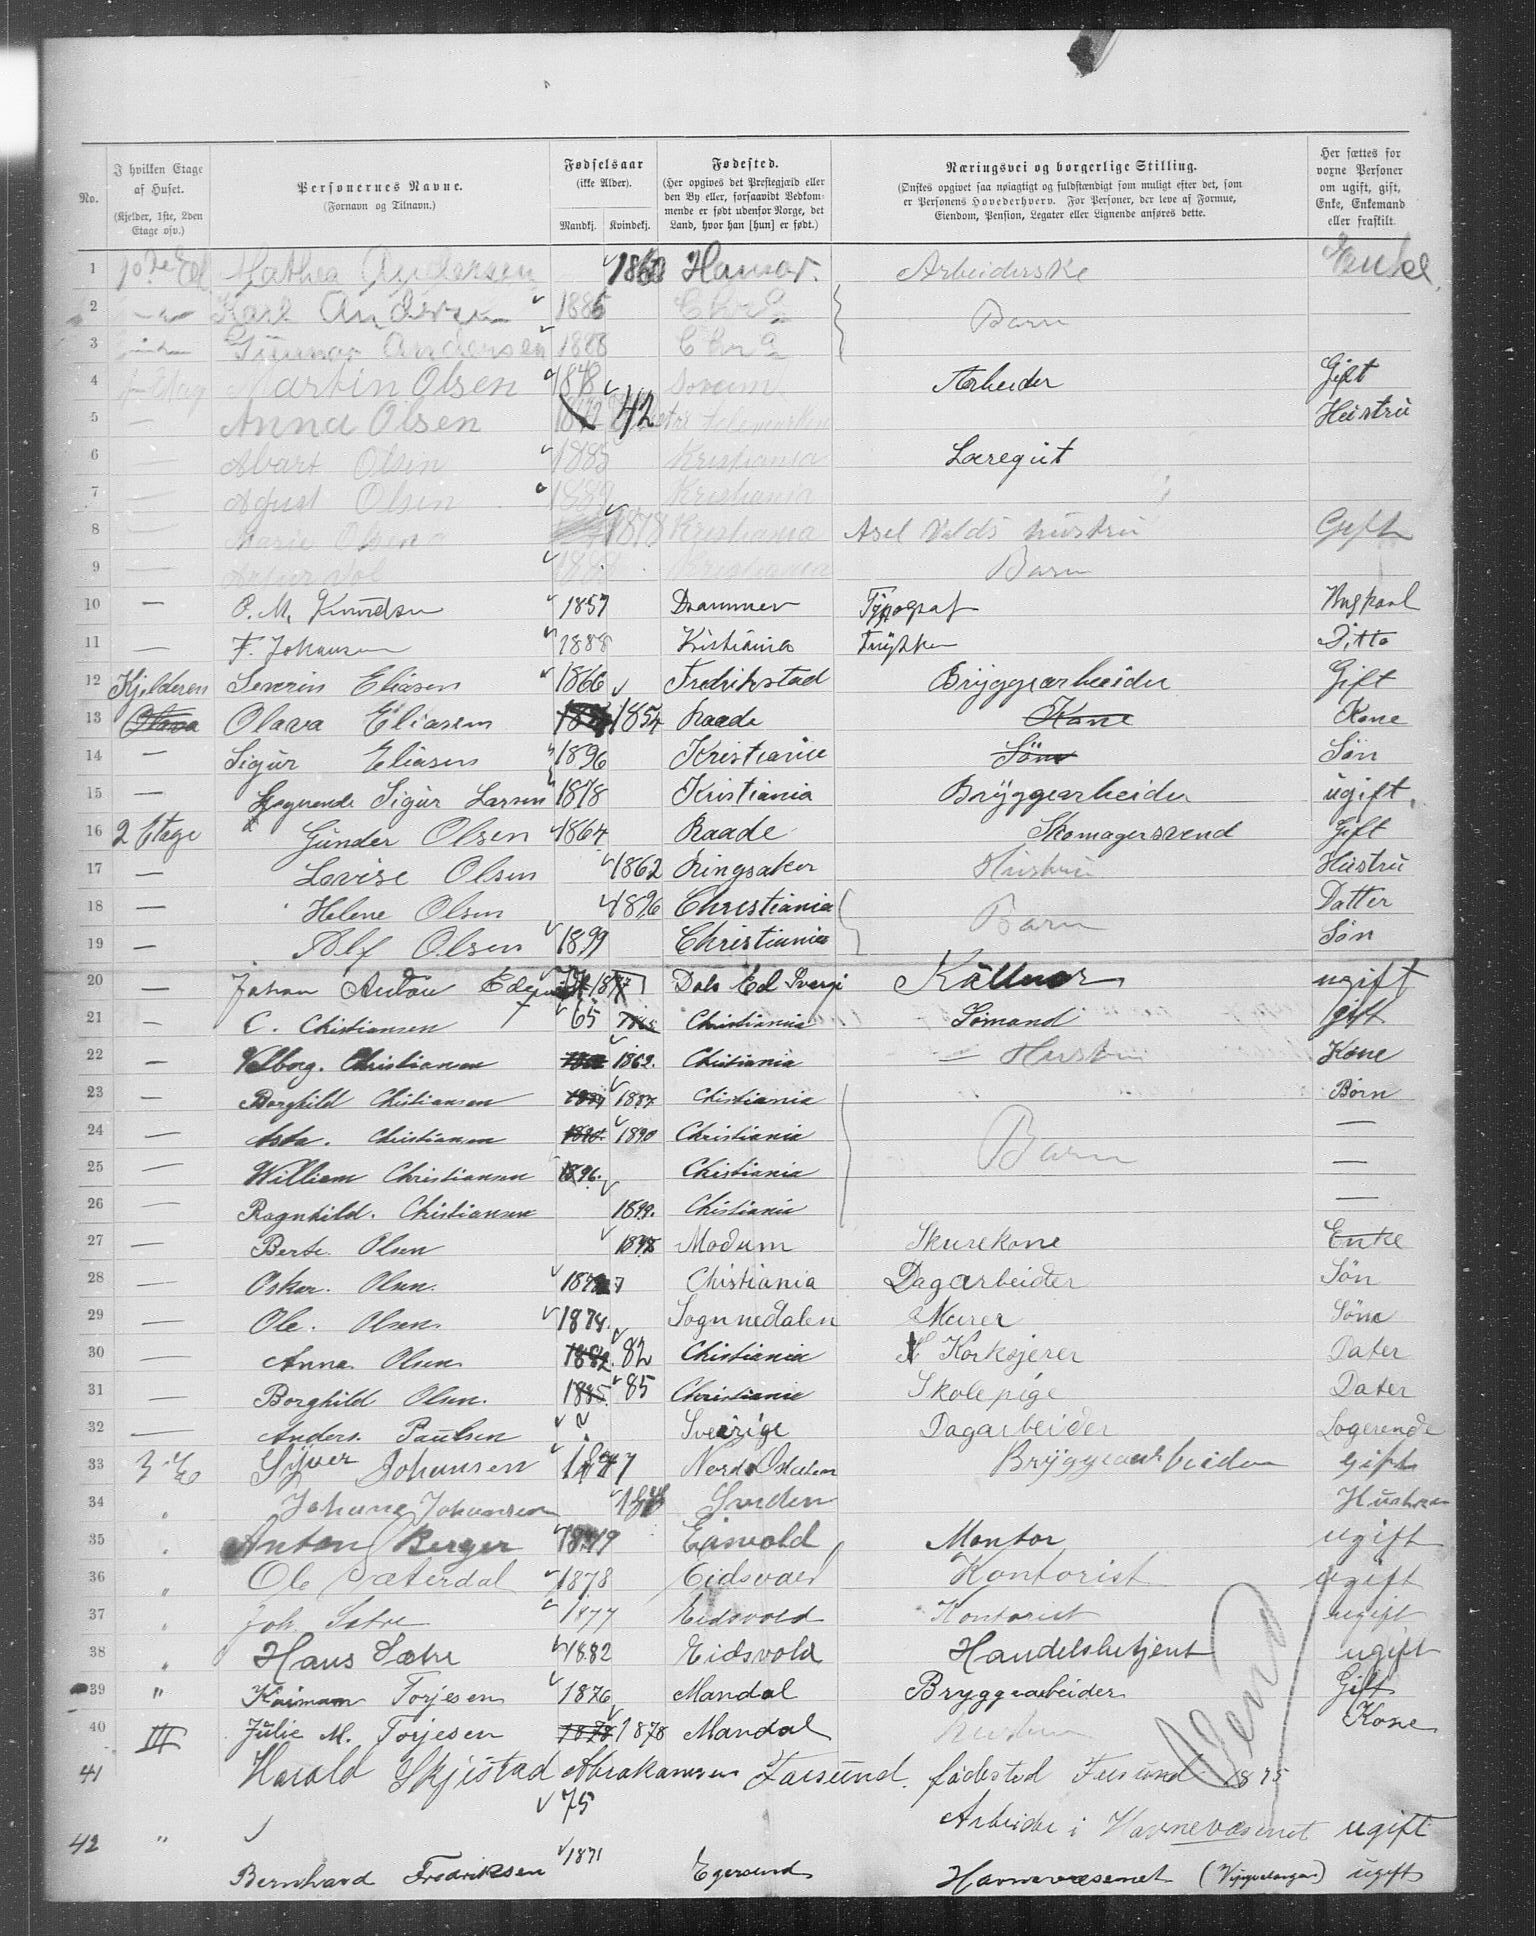 No.
I hvilken Etage af Huset. (Kjelder, 1ste, 2den Etage osv.)
Personernes Navne. (Fornavn og Tilnavn.)
Fødselsaar (ikke Alder). Mandkj. Kvindekj.
Fødested. (Her opgives det Prestegjæld eller den By eller, forsaavidt Vedkommende er født udenfor Norge, det Land, hvor han [hun] er født.)
Næringsvei og borgerlige Stilling. (Ønskes opgivet saa nøiagtigt og fuldstændigt som muligt efter det, som er Personens Hovederhverv. For Personer, der leve af Formue, Eiendom, Pension, Legater eller Lignende anføres dette.
Her sættes for voxne Personer om ugift, gift, Enke, Enkemand eller fraskilt.
1 Mathea Andersen 1860 Hamar. Arbeiderske Enke
2 Karl Andersen 1885 Chra Barn
3 Gunnar Andersen 1888 Chra
4 Martin Olsen 1848 Sørum Arbeider Gift
5 Anna Olsen 1842 42 Telemarken Hustru
6 Olsen 1885 Kristiania Læregut
7 Olsen 1889 Kristiania
8 Marie Olsen 1878 Kristiania Hustru Gift
9 Kristiania Barn
10 — O. M. Knudsen 1857 Drammen Typograf Ungkarl
11 — F. Johansen 1888 Kristiania Ditto
12 Kjelderen Severin Eliasen 1866 Fredrikstad Bryggearbeider Gift
13 Olava Olava Eliasen 1854 Raade Kone Kone
14 — Sigur Eliasen 1896 Kristiania Søn Søn
15 — Logerende Sigur Larsen 1878 Kristiania Bryggearbeider ugift
16 2 Etage Gunder Olsen 1864 Raade Skomagersvend Gift
17 — Lovise Olsen 1862 Ringsaker Hustru Hustru
18 — Helene Olsen 1896 Christiania Barn Datter
19 — Alf Olsen 1899 Christiania Søn
20 — Johan Anton Dals Ed Sverge Källnor ugift
21 — C. Christiansen 65 Christiania Sømand gift
22 — Valborg. Christiansen 1862. Christiania — Hustru Kone
23 — Borghild Christiansen 1887 Christiania Børn
24 — Asta. Christiansen 1890 Christiania Barn —
25 — William Christiansen 1896. Christiania —
26 — Ragnhild. Christiansen 1899. Christiania —
27 — Berte. Olsen 1848 Modum Skurekone Enke
28 — Oskar. Olsen. Christiania Dagarbeider Søn
29 — Ole. Olsen. 1874. Sognnedalen Murer Søn
30 — Anna Olsen 1882 82 Christiania Korkskjerer Dater
31 — Borghild Olsen. 1885. 85 Christiania Skolepige Dater
32 — Anders. Paulsen Sverige Dagarbeider Logerende
33 3 Et Syver Johansen 1847 Nord Østerdalen Bryggearbeider Gift
34 Johane Johansen Hustru
35 Anton Berger 1879 Eisvold Montør ugift
36 " Ole Sæterdal 1878 Eidsvold Kontorist ugift
37 Joh. Sætre 1877 Eidsvold Kontorist ugift
38 " Hans Sætre 1882 Eidsvold Handelsbetjent ugift
39 " Torjesen 1876 Mandal Bryggearbeider Gift
40 III Julie M. Torjesen 1878 1878 Mandal Hustru Kone
41 Harald Skjistad Abrahamsen Farsund. fødested Farsund 1875
75 Arbeider i Havnevæsenet ugift
42 " Bernhard Fredriksen 1871 Egersund Havnevæsenet ugift
Vend